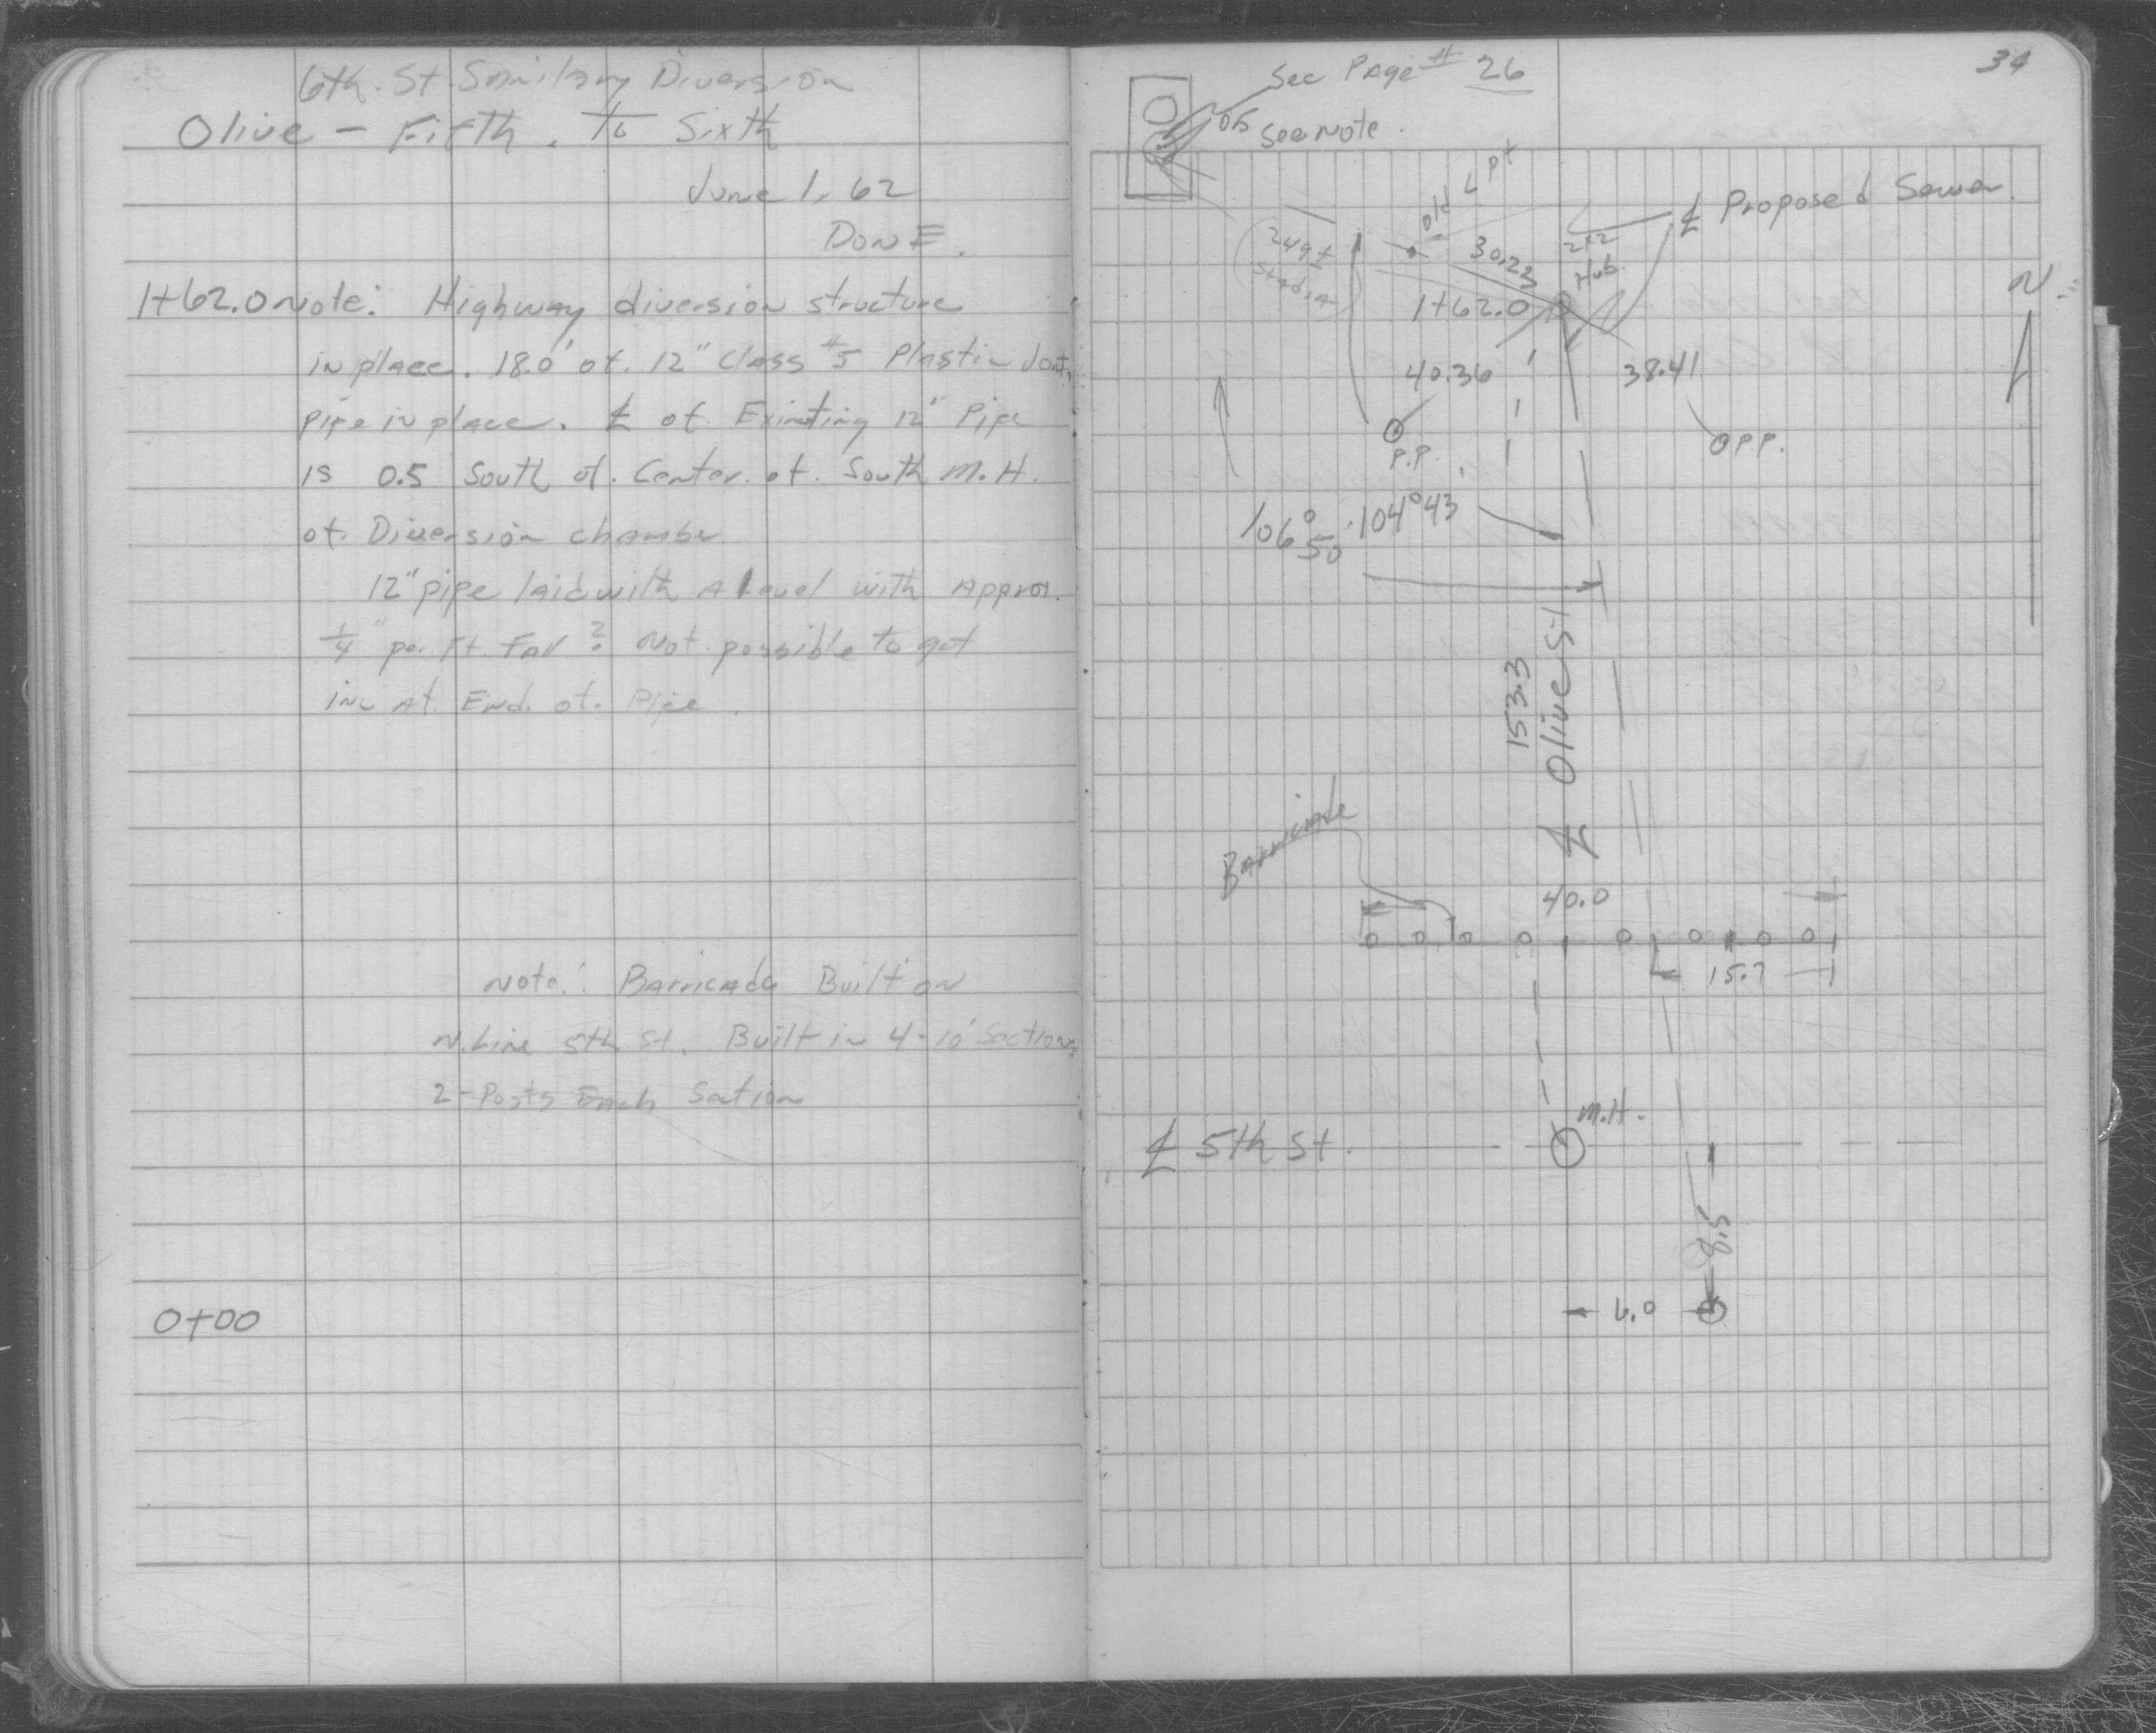 6th. St. Sanitary Diversion
Olive - Fifth. To Sixth
June 1, 62
DONE.
1+62.0 Note: Highway diversion structure
in place. 18.0' of. 12" Class #5 Plastic Joint
pipe in place. ℄ of Existing 12" Pipe
is 0.5 South of. Center. of. South M.H.
of. Diversion chamber
12" pipe laid with A Level with Approx.
1/4" per Ft. Fall ? Not possible to get
inv At. End. of. Pipe.
Note: Barricade Built on
N. Line 5th St. Built in 4-10' Sections
2-Posts Each Section
0+00
34
See Page # 26
See Note.
Old L Pt
℄ Proposed Sewer.
249±
Stadia
30.23
2x2
Hub.
N.
1+62.0
40.36
38.41
P.P.
P.P.
106°50'
104°43'
153.3
℄ Olive St
Barricade
40.0
15.7
M.H.
℄ 5th St.
8.5
6.0